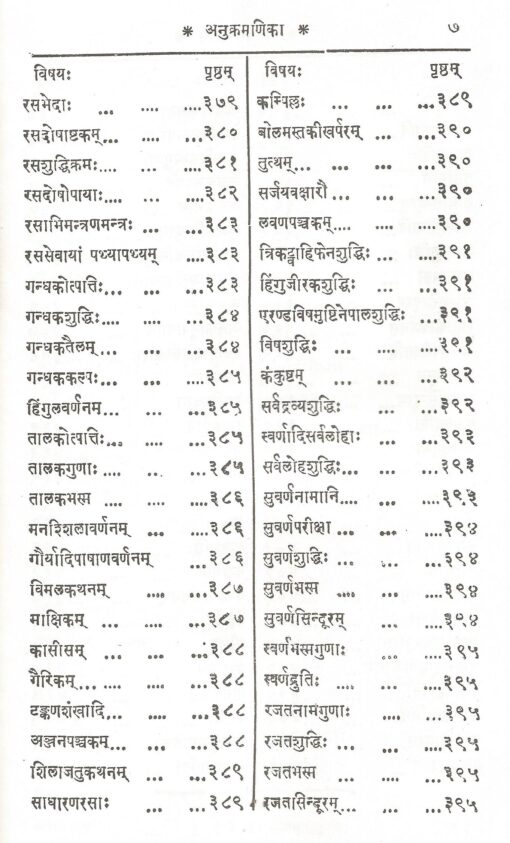 * अनुक्रमणिका * ७
विषयः पृष्ठम्
रसभेदाः ... .... ....३७९
रसदोषाष्टकम्... .... ...३८०
रसशुद्धिक्रमः.... ... ....३८१
रसदोषोपायाः.... ... ....३८२
रसाभिमन्त्रणमन्त्रः ... ....३८३
रससेवायां पथ्यापथ्यम् ....३८३
गन्धकोत्पत्तिः... ... ...३८३
गन्धकशुद्धिः.... .... ....३८४
गन्धकतैलम्... ... ...३८४
गन्धककल्पः... .... ....३८५
हिंगुलवर्णनम... ... ...३८५
तालकोत्पत्तिः... .... ....३८५
तालकगुणाः.... ... ...३८५
तालकभस्म .... .... ....३८६
मनश्शिलावर्णनम् ... ....३८६
गौर्यादिपाषाणवर्णनम् ...३८६
विमलकथनम् .... ...३८७
माक्षिकम् ... .... ...३८७
कासीसम् ... ... ...३८८
गैरिकम्... .... .... ...३८८
टङ्कणशंखादि... .... ...३८८
अञ्जनपञ्चकम्... ... ...३८८
शिलाजतुकथनम् ... ...३८९
साधारणरसाः ... ...३८९
विषयः पृष्ठम्
कम्पिल्लः ... ... ...३८९
बोलमस्तकीखर्परम् ... ...३९०
तुत्थम्... ... ... ...३९०
सर्जयवक्षारौ ... ... ...३९०
लवणपञ्चकम्.... ... ....३९०
त्रिकट्वाहिफेनशुद्धिः ... ....३९१
हिंगुजीरकशुद्धिः ... ...३९१
एरण्डविषमुष्टिनेपालशुद्धिः ...३९१
विषशुद्धिः ... .... ....३९१
कंकुष्टम् ... ... ...३९२
सर्वद्रव्यशुद्धिः ... ...३९२
स्वर्णादिसर्वलोहाः ... ...३९३
सर्वलोहशुद्धिः... ... ...३९३
सुवर्णनामानि.... ... ....३९३
सुवर्णपरीक्षा ... ... ...३९४
सुवर्णशुद्धिः ... ... ...३९४
सुवर्णभस्म .... ... ....३९४
सुवर्णसिन्दूरम् ... ...३९४
स्वर्णभस्मगुणाः ... ....३९५
स्वर्णद्रुतिः .... ... ....३९५
रजतनामगुणाः .... ....३९५
रजतशुद्धिः ... ... ...३९५
रजतभस्म ... .... ....३९५
रजतासिन्दूरम्... ... ...३९५